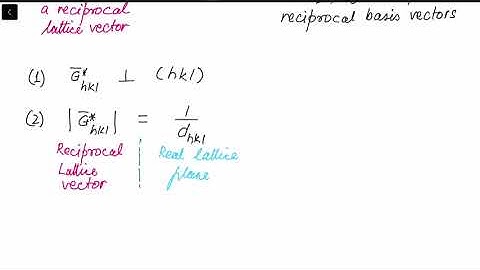 a reciprocal
lattice vector
reciprocal basis vectors
(1) G̅*hkl ⊥ (hkl)
(2) |G̅*hkl| = 1/dhkl
Reciprocal Lattice vector
Real lattice plane